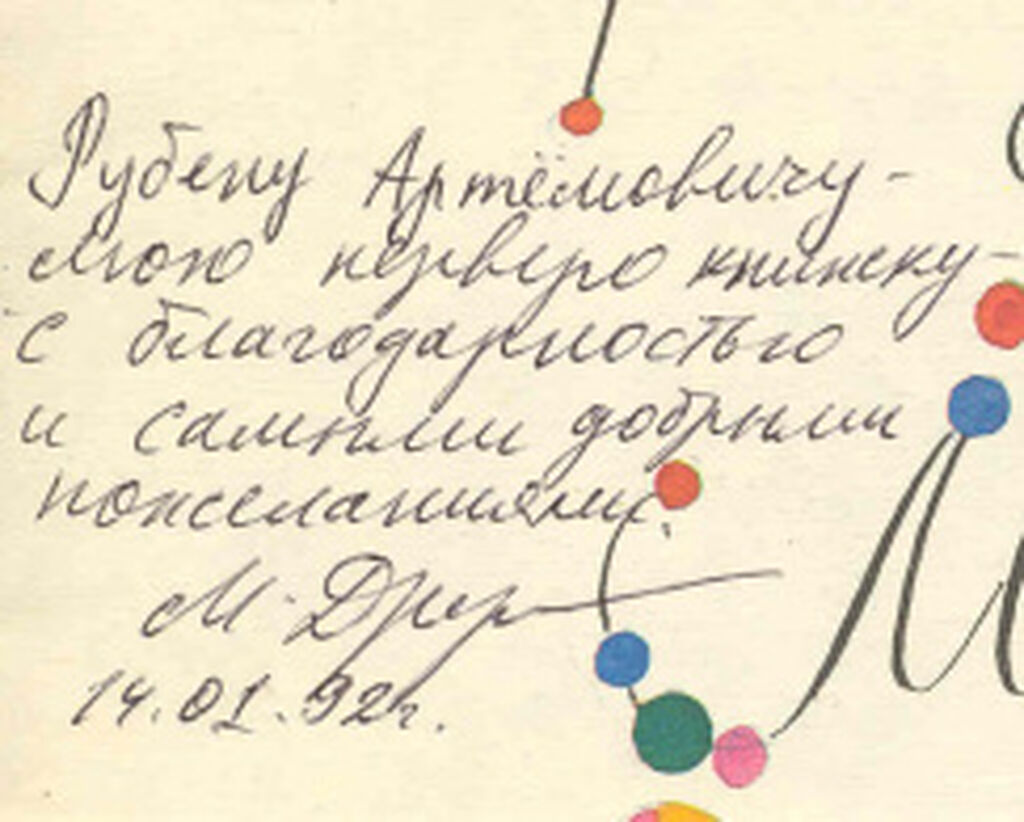 Рубену Артёмовичу -
мою первую книжку -
с благодарностью
и самыми добрыми
пожеланиями.
М.
14.01.92г.